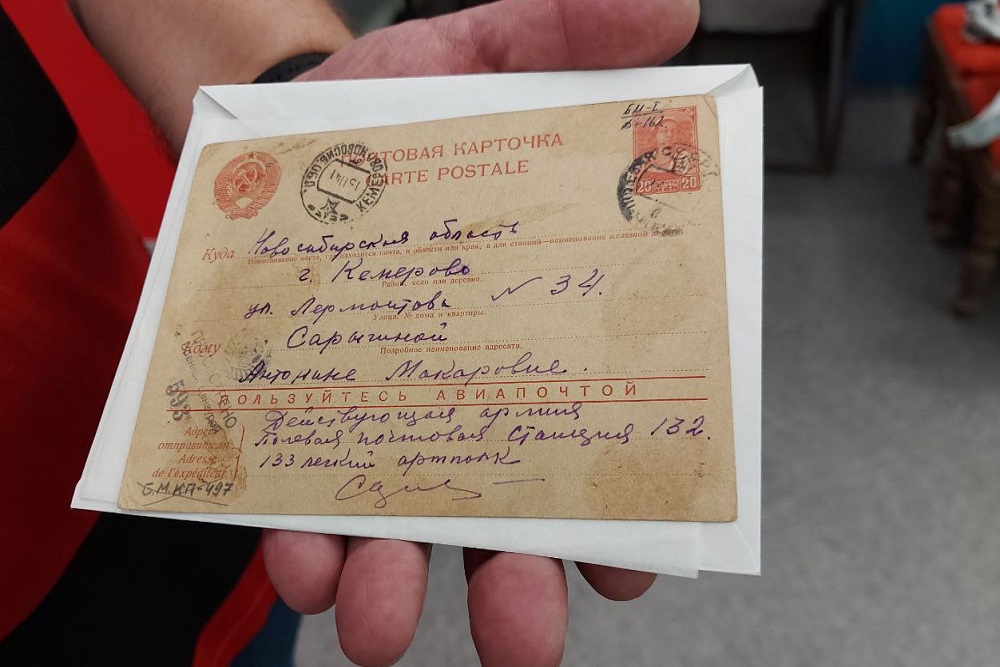 БМ-I
В-162
ПОЧТОВАЯ КАРТОЧКА
CARTE POSTALE
20 20
КЕМЕРОВО НОВОСИБ. ОБЛ.
Куда Новосибирская область
Наименование места, где находится почта, и области или края, а для станций—наименование железной дороги
г. Кемерово
Район, село или деревня.
ул. Лермонтова № 34.
Улица, № дома и квартиры.
Кому Сарыгиной
Подробное наименование адресата.
Антонине Макаровне.
ПОЛЬЗУЙТЕСЬ АВИАПОЧТОЙ
593
Адрес отправителя
Adresse de l'expéditeur
Действующая армия
Полевая почтовая станция 132.
133 легкий артполк
Б.М.КП-497